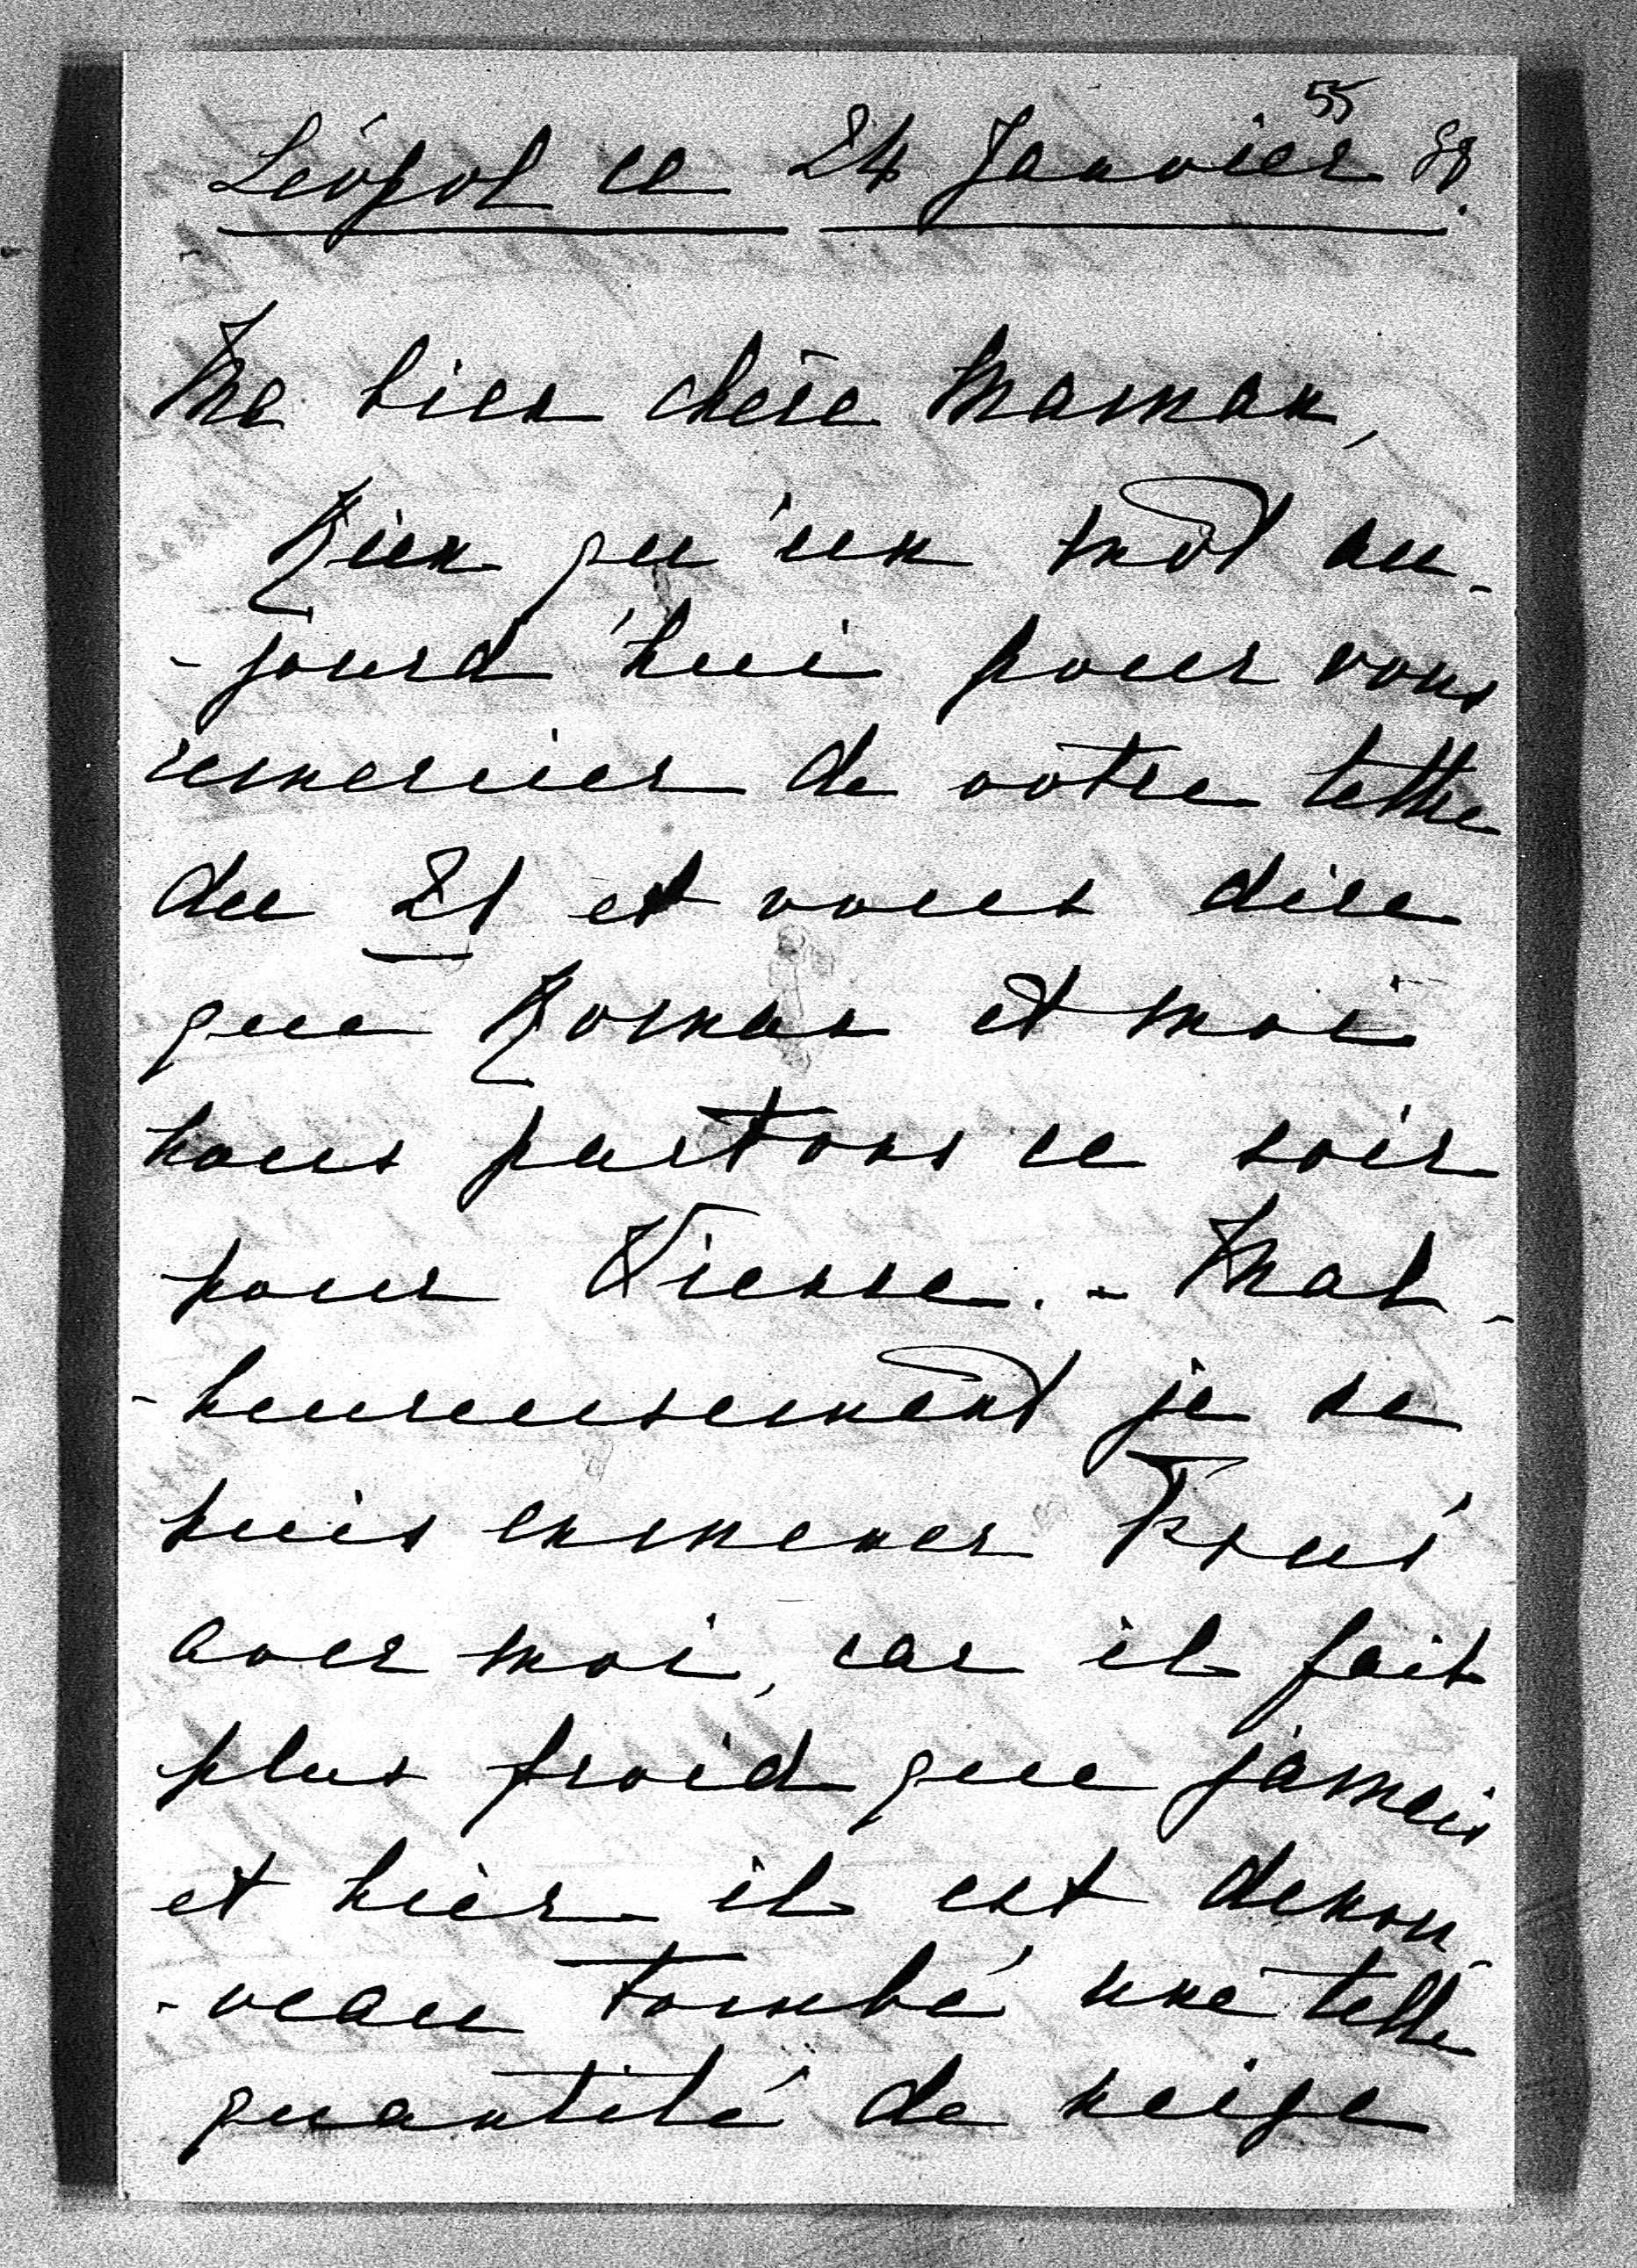 55
Léopol ce 24 Janvier 88.
Ma bien chère Maman,
Rien qu'un mot au-
-jourd'hui pour vous
remercier de votre lettre
du 21 et vous dire
que Roman et moi
nous partons ce soir
pour Vienne. - Mal-
-heureusement je ne
puis emmener
avec moi, car il fait
plus froid que jamais
et hier il est denou-
-veau tombé une telle
quantité de neige